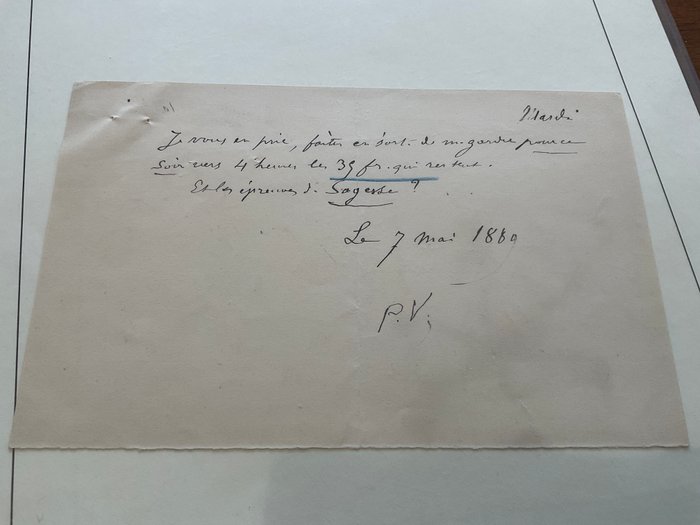 Mardi
Je vous en prie, faites en sorte de me garder pour ce
soir vers 4 heures les 35 fr. qui restent.
Et les épreuves de Sagesse ?
Le 7 mai 1889
P. V.